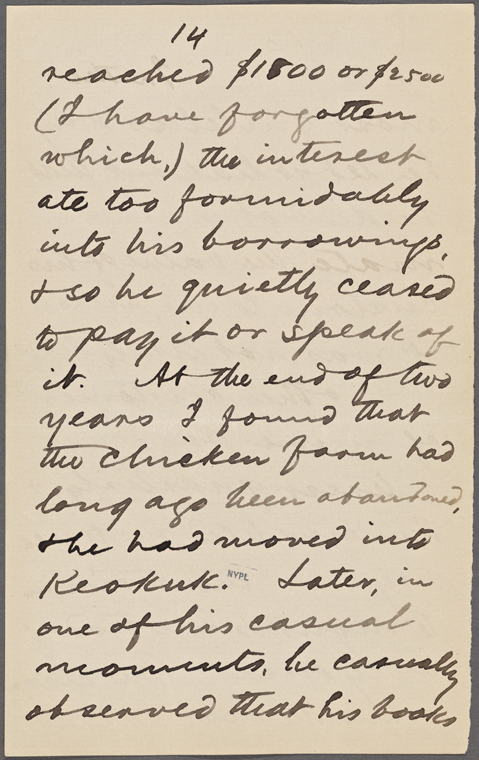 14
reached $1800 or $2500
(I have forgotten
which,) the interest
ate too formidably
into his borrowings,
& so he quietly ceased
to pay it or speak of
it. At the end of two
years I found that
the chicken farm had
long ago been abandoned,
& he had moved into
Keokuk. NYPL Later, in
one of his casual
moments, he casually
observed that his books